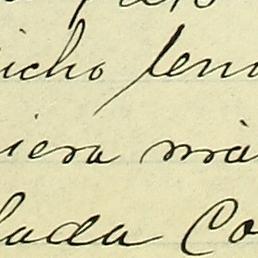 icho fen
iera mà
lada Co